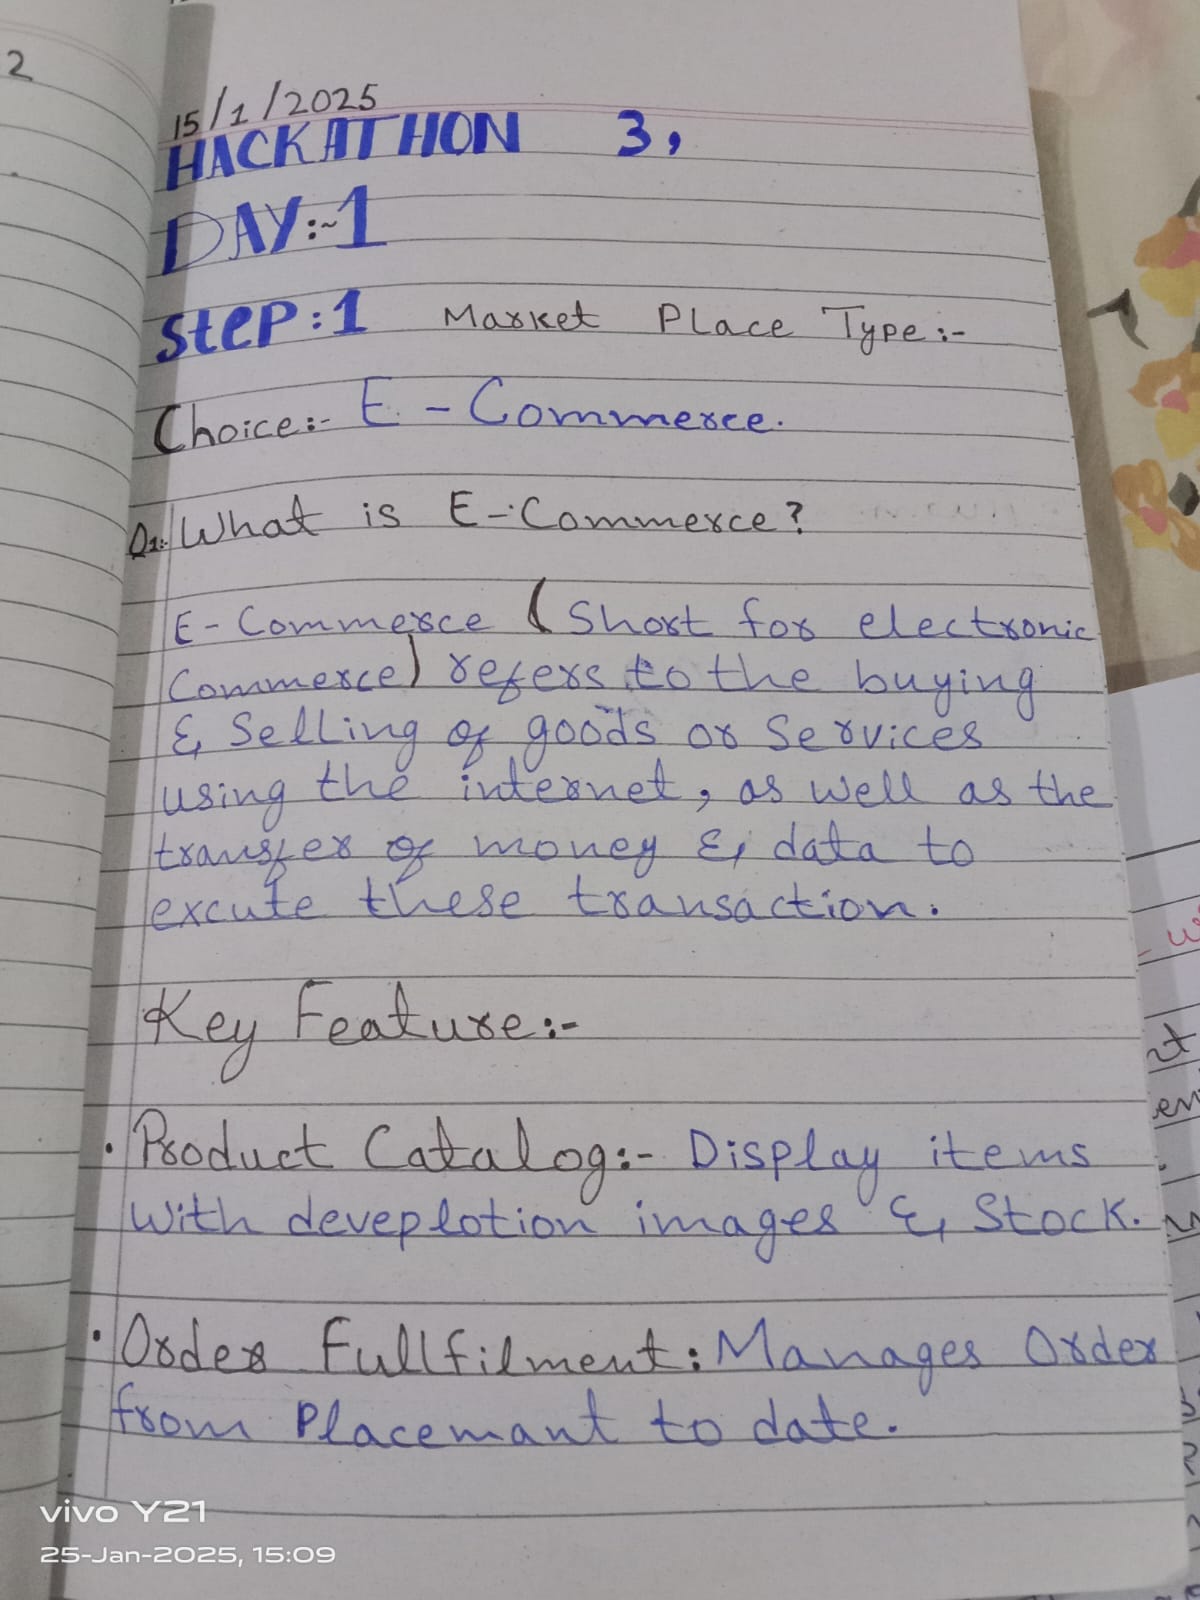 2
15/1/2025
HACKATHON 3,
DAY:-1
SteP:1 Market PLace Type:-
Choice:- E-Commerce.
Q1:- What is E-Commerce?
E-Commerce (Short for electronic
Commerce) refers to the buying
& Selling of goods or Services
using the internet, as well as the
transfer of money & data to
excute these transaction.
Key Feature:-
• Product Catalog:- Display items
with deveplotion images & Stock.
• Order Fullfilment: Manages Order
from Placemant to date.
vivo Y21
25-Jan-2025, 15:09